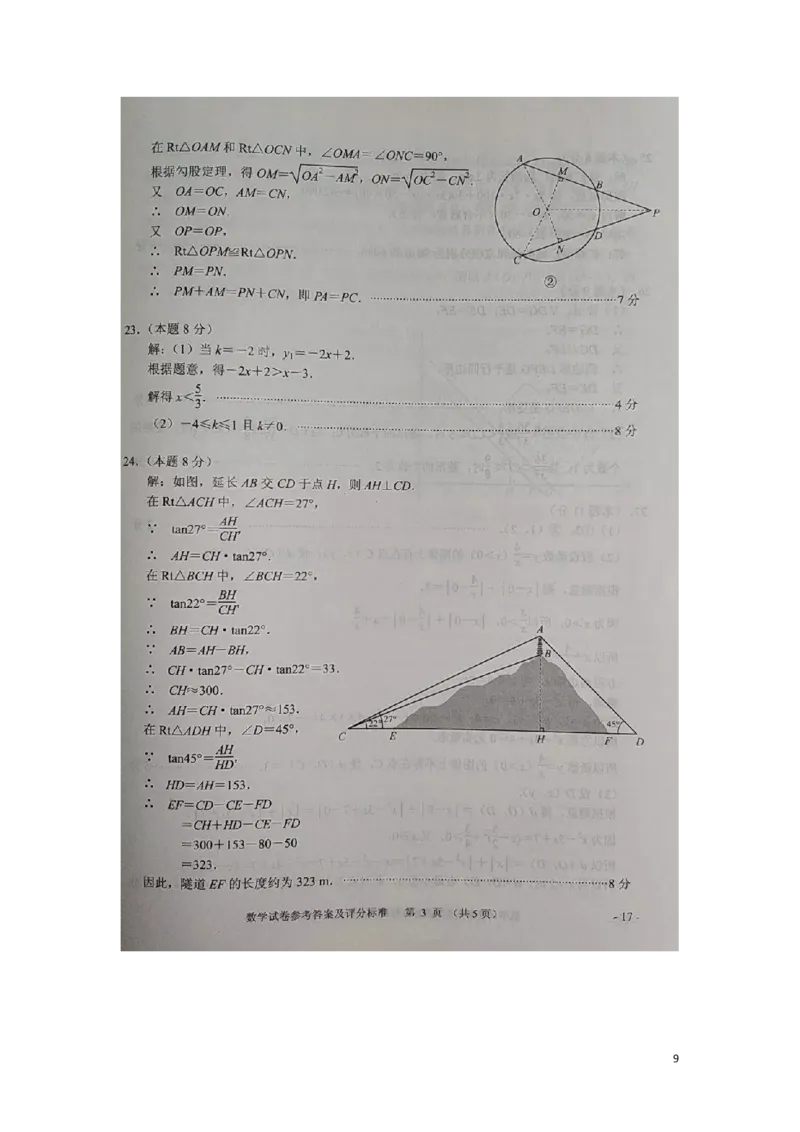 在Rt△OAM和Rt△OCN中，∠OMA=∠ONC=90°，
根据勾股定理，得OM=√(OA²-AM²)，ON=√(OC²-CN²).
又 OA=OC，AM=CN，
∴ OM=ON.
又 OP=OP，
∴ Rt△OPM≌Rt△OPN.
∴ PM=PN.
∴ PM+AM=PN+CN，即PA=PC. ……7分
A
M
B
O
P
D
N
C
②
23.（本题8分）
解：（1）当k=-2时，y₁=-2x+2.
根据题意，得-2x+2>x-3.
解得x<5/3. ……4分
（2）-4≤k≤1且k≠0. ……8分
24.（本题8分）
解：如图，延长AB交CD于点H，则AH⊥CD.
在Rt△ACH中，∠ACH=27°，
∵ tan27°=AH/CH，
∴ AH=CH·tan27°.
在Rt△BCH中，∠BCH=22°，
∵ tan22°=BH/CH，
∴ BH=CH·tan22°.
∵ AB=AH-BH，
∴ CH·tan27°-CH·tan22°=33.
∴ CH≈300.
∴ AH=CH·tan27°≈153.
在Rt△ADH中，∠D=45°，
∵ tan45°=AH/HD，
∴ HD=AH=153.
∴ EF=CD-CE-FD
=CH+HD-CE-FD
=300+153-80-50
=323.
因此，隧道EF的长度约为323 m. ……8分
A
B
22°
27°
45°
C
E
H
F
D
数学试卷参考答案及评分标准 第 3 页 （共5页）
- 17 -
9